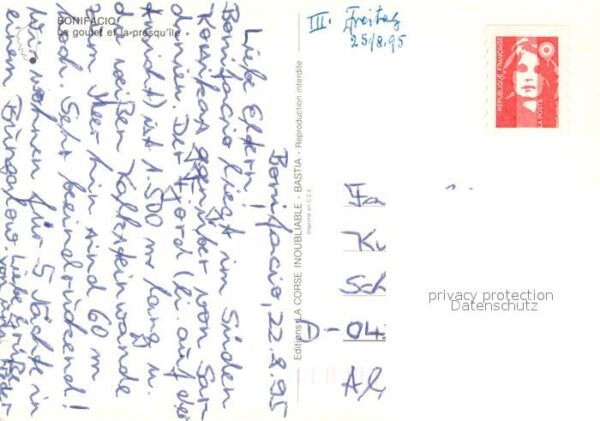 BONIFACIO
Le goulet et la presqu'île
III. Freitag
25/8.95
Bonifacio, 22.8.95
Liebe Eltern!
Bonifacio liegt im Süden
Korsikas gegenüber von Sar-
dinien. Der Fjord (li auf der
) ist 1.500 m lang u.
die weißen Kalksteinwände
zum Meer hin sind 60 m
hoch. Sehr beeindruckend!
Wir wohnen für 5 Nächte in
einem Bungalow. Liebe Grüße
von
Editions LA CORSE INOUBLIABLE - BASTIA - Reproduction interdite
Imprimé en C.E.E.
REPUBLIQUE FRANÇAISE
LA POSTE
Fa
Ku
Sch
D-04
Al
privacy protection
Datenschutz